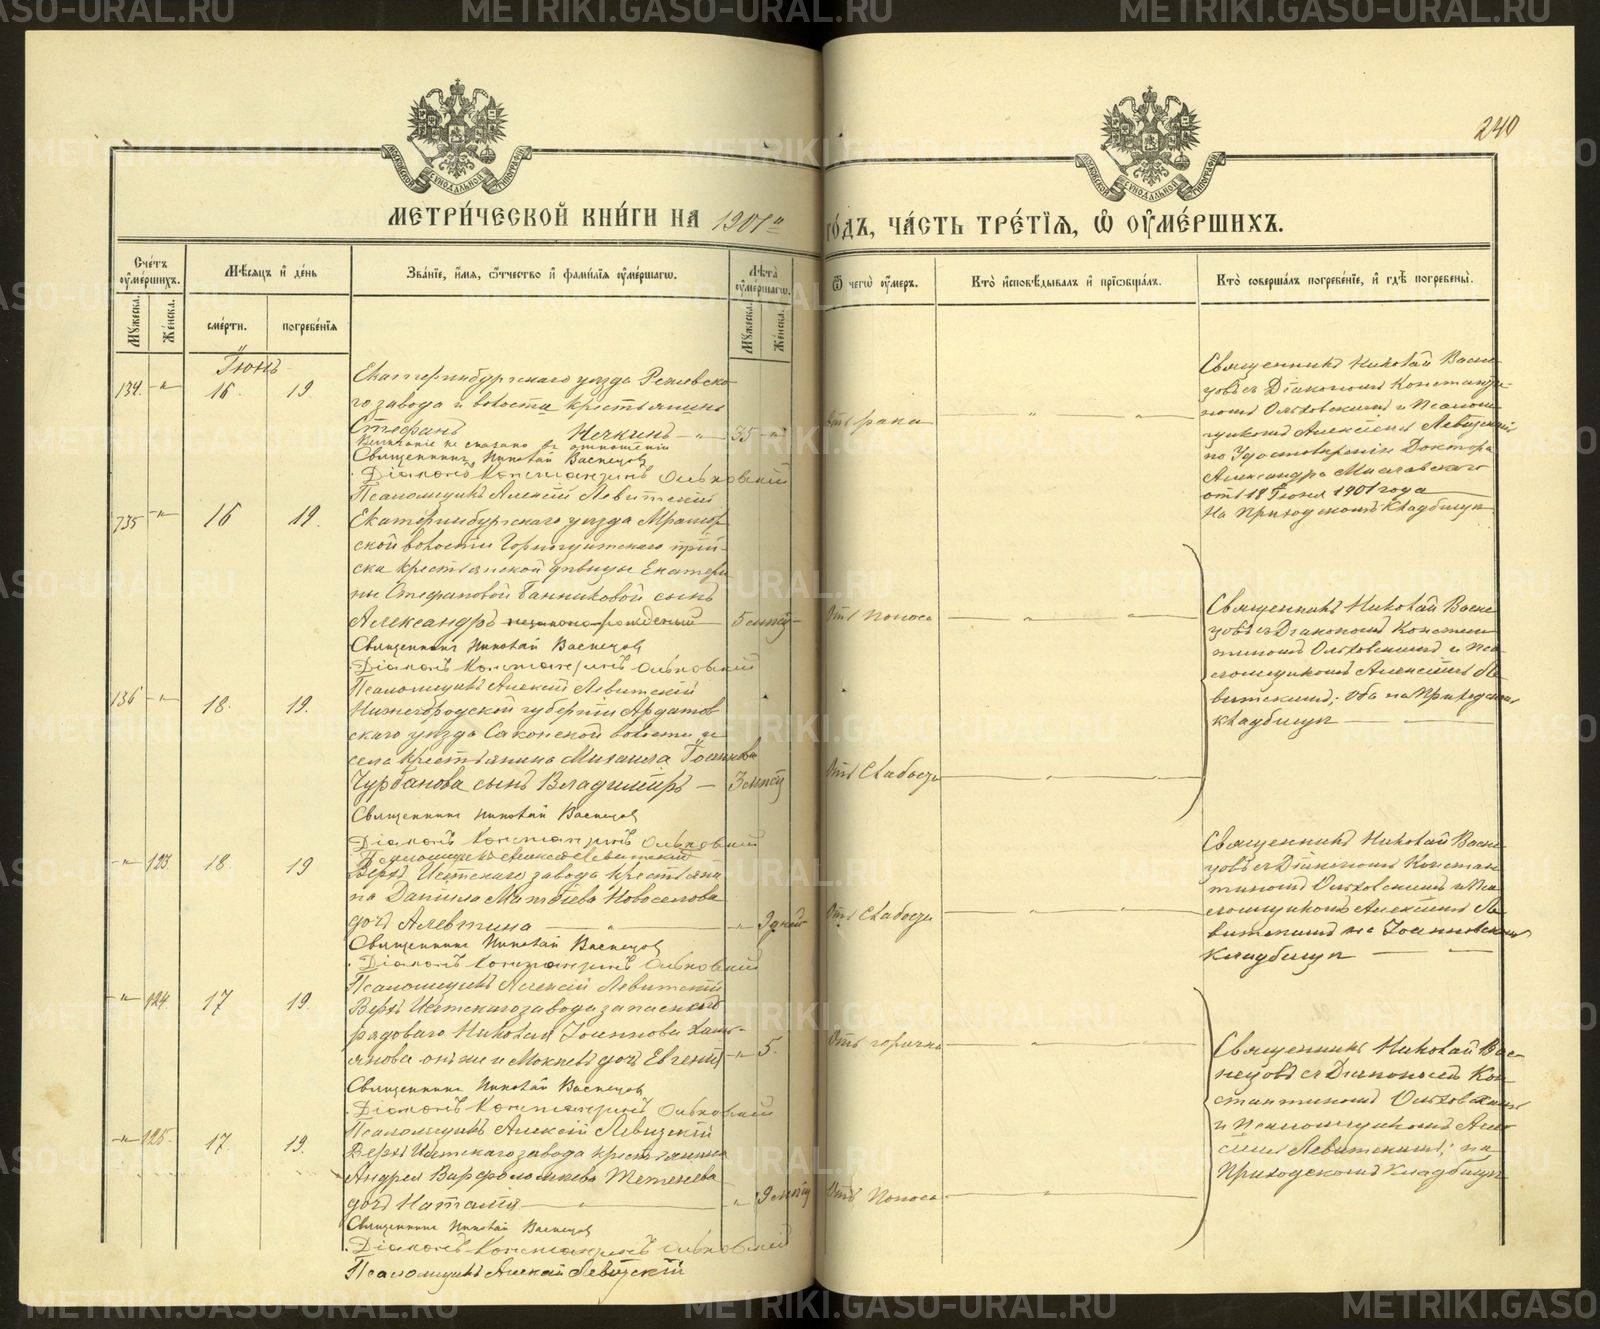 METRIKI.GASO-URAL.RU
240
МОСКОВСКОЙ СѴНОДАЛЬНОЙ ТИПОГРАФІИ
МОСКОВСКОЙ СѴНОДАЛЬНОЙ ТИПОГРАФІИ
МЕТРИ́ЧЕСКОЙ КНИ́ГИ НА 1901й
ГО́ДЪ, ЧА́СТЬ ТРЕ́ТІЯ, Ѡ҆ ОУ҆МЕ́РШИХЪ.
Счетъ оумершихъ.
Мужеска.
Женска.
Мѣсяцъ и день
смерти.
погребенія
Званіе, имя, отчество и фамилія оумершагѡ.
Лѣта оумершагѡ.
Мужеска.
Женска.
Ѿ чегѡ оумеръ.
Кто исповѣдывалъ и пріобщалъ.
Кто совершалъ погребеніе, и гдѣ погребены.
Іюнь
134. -„- 16. 19
Екатеринбургскаго уезда Режевско-
го завода и волости крестьянинъ
Стефанъ Нечкинъ -„- 35 -„-
Величание не сказано в отношении
Священникъ Николай Васнецовъ
Діаконъ Константинъ Ольховскій
Псаломщикъ Алексій Левитскій
отъ рака
Священникъ Николай Васне-
цовъ съ Діакономъ Константи-
номъ Ольховскимъ и Псалом-
щикомъ Алексіемъ Левитскимъ
по Удостоверенію Доктора
Александра Миславскаго
отъ 18 Іюня 1901 года
На Приходскомъ Кладбищѣ
135 -„- 16 19.
Екатеринбургскаго уезда Мрамор-
ской волости Горнощитскаго прій-
ска крестьянской дѣвицы Екатери-
ны Стефановой Банниковой сынъ
Александръ незаконнорожденный - 5 мѣс.
Священникъ Николай Васнецовъ
Діаконъ Константинъ Ольховскій
Псаломщикъ Алексій Левитскій
Отъ поноса
Священникъ Николай Васне-
цовъ съ Діакономъ Констан-
тиномъ Ольховскимъ и Пса-
ломщикомъ Алексіемъ Ле-
витскимъ; оба на Приходскомъ
кладбищѣ
136 -„- 18. 19.
Нижегородской губерніи Ардатов-
скаго уезда Саконской волости и
села крестьянина Михаила Іоаннова
Чурбанова сынъ Владиміръ - 3 мѣс.
Священникъ Николай Васнецовъ
Діаконъ Константинъ Ольховскій
Псаломщикъ Алексій Левитскій
Отъ слабости
-„- 123 18. 19
Верхъ Исетскаго завода крестьяни-
на Даніила Матвіева Новоселова
дочь Алевтина -„- 9 дней
Священникъ Николай Васнецовъ
Діаконъ Константинъ Ольховскій
Псаломщикъ Алексій Левитскій
Отъ слабости
Священникъ Николай Васне-
цовъ съ Діакономъ Констан-
тиномъ Ольховскимъ и Пса-
ломщикомъ Алексіемъ Ле-
витскимъ на Іоанновскомъ
Кладбищѣ
-„- 124. 17 19.
Верхъ Исетскаго завода запаснаго
рядоваго Николая Іоаннова
дочь Евгенія -„- 5.
Священникъ Николай Васнецовъ
Діаконъ Константинъ Ольховскій
Псаломщикъ Алексій Левитскій
Отъ горячки
Священникъ Николай Вас-
нецовъ съ Діакономъ Кон-
стантиномъ Ольховскимъ
и Псаломщикомъ Алек-
сіемъ Левитскимъ; на
Приходскомъ Кладбищѣ
-„- 125. 17. 19.
Верхъ Исетскаго завода крестьянина
Андрея Варфоломеева Тетенева
дочь Наталія -„- 9 мѣс.
Священникъ Николай Васнецовъ
Діаконъ Константинъ Ольховскій
Псаломщикъ Алексій Левитскій
Отъ поноса